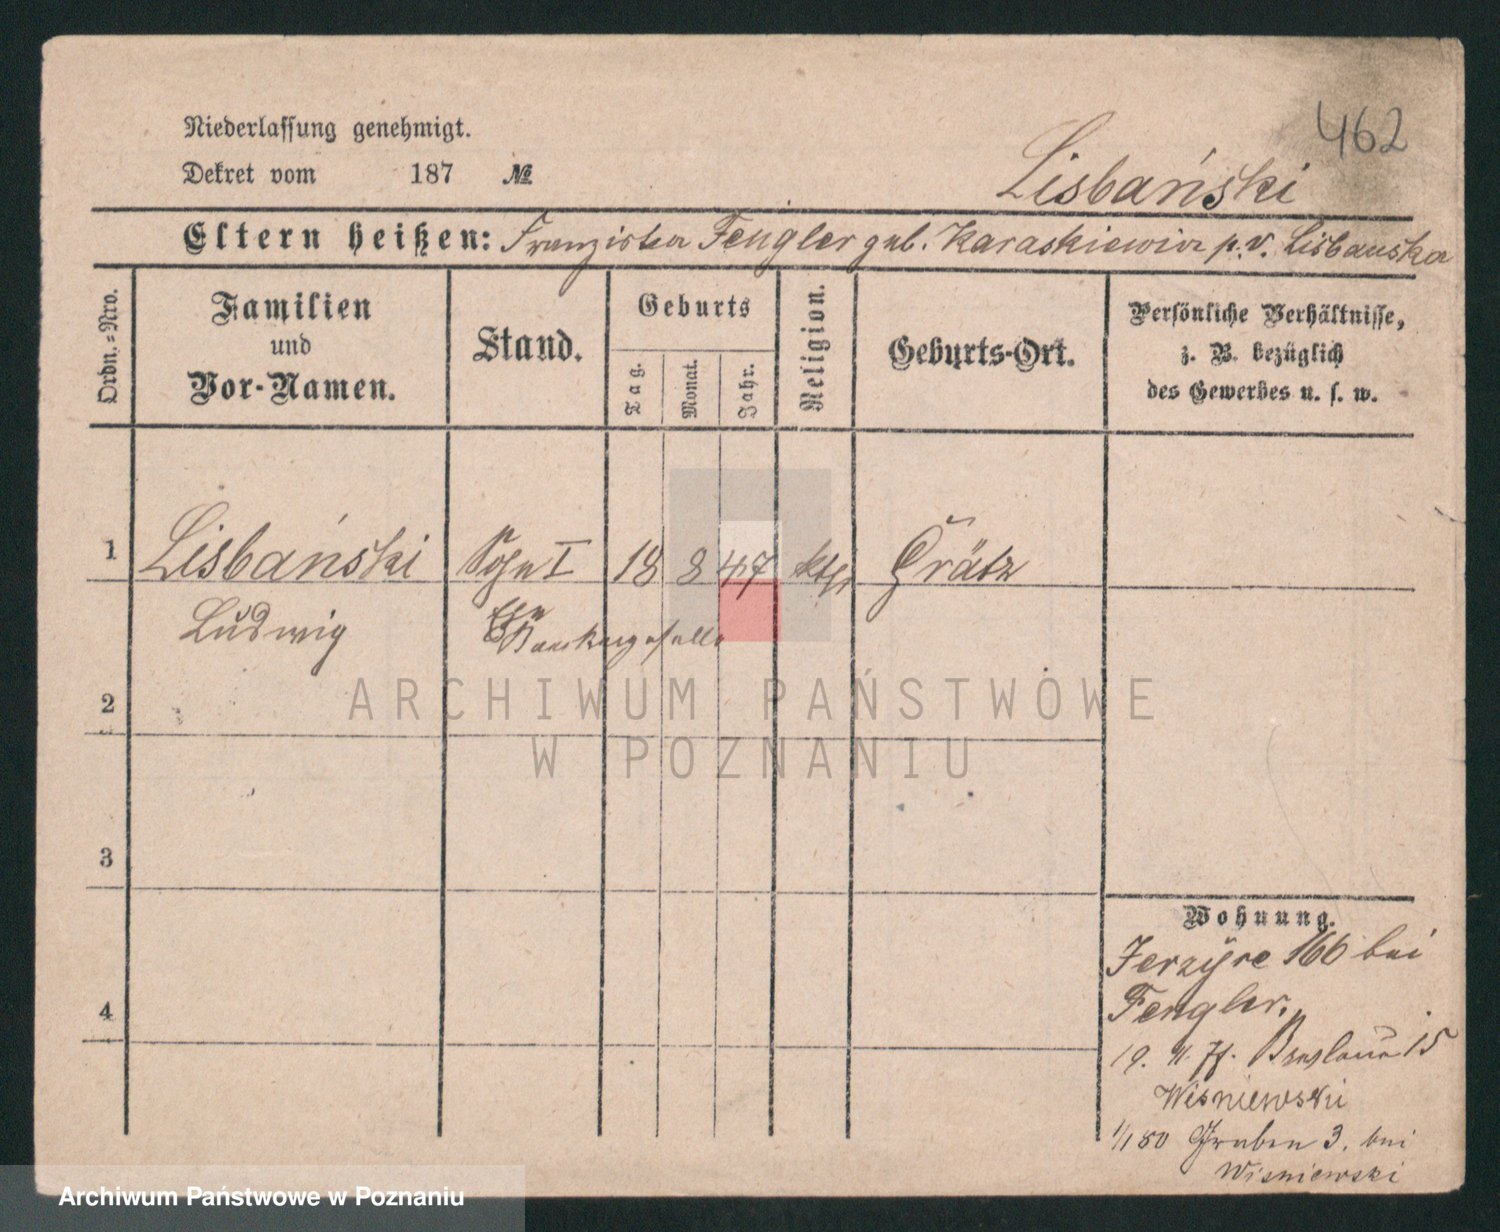 462
Niederlassung genehmigt.
Dekret vom 187 №
Lisbański
Eltern heißen: Franziska Fengler geb. Karaskiewicz p. v. Lisbanska
Ordn.-Nro.
Familien
und
Vor-Namen.
Stand.
Geburts
Tag.
Monat.
Jahr.
Religion.
Geburts-Ort.
Persönliche Verhältnisse,
z. B. bezüglich
des Gewerbes u. s. w.
1 Lisbański Sohn I 18 8 47 kth Grätz
Ludwig
2
3
4
Wohnung.
Jerzyce 166 bei
Fengler.
19. Breslauer 15
Wisniewski
1/1 80 Graben 3. bei
Wisniewski
ARCHIWUM PAŃSTWOWE
W POZNANIU
Archiwum Państwowe w Poznaniu